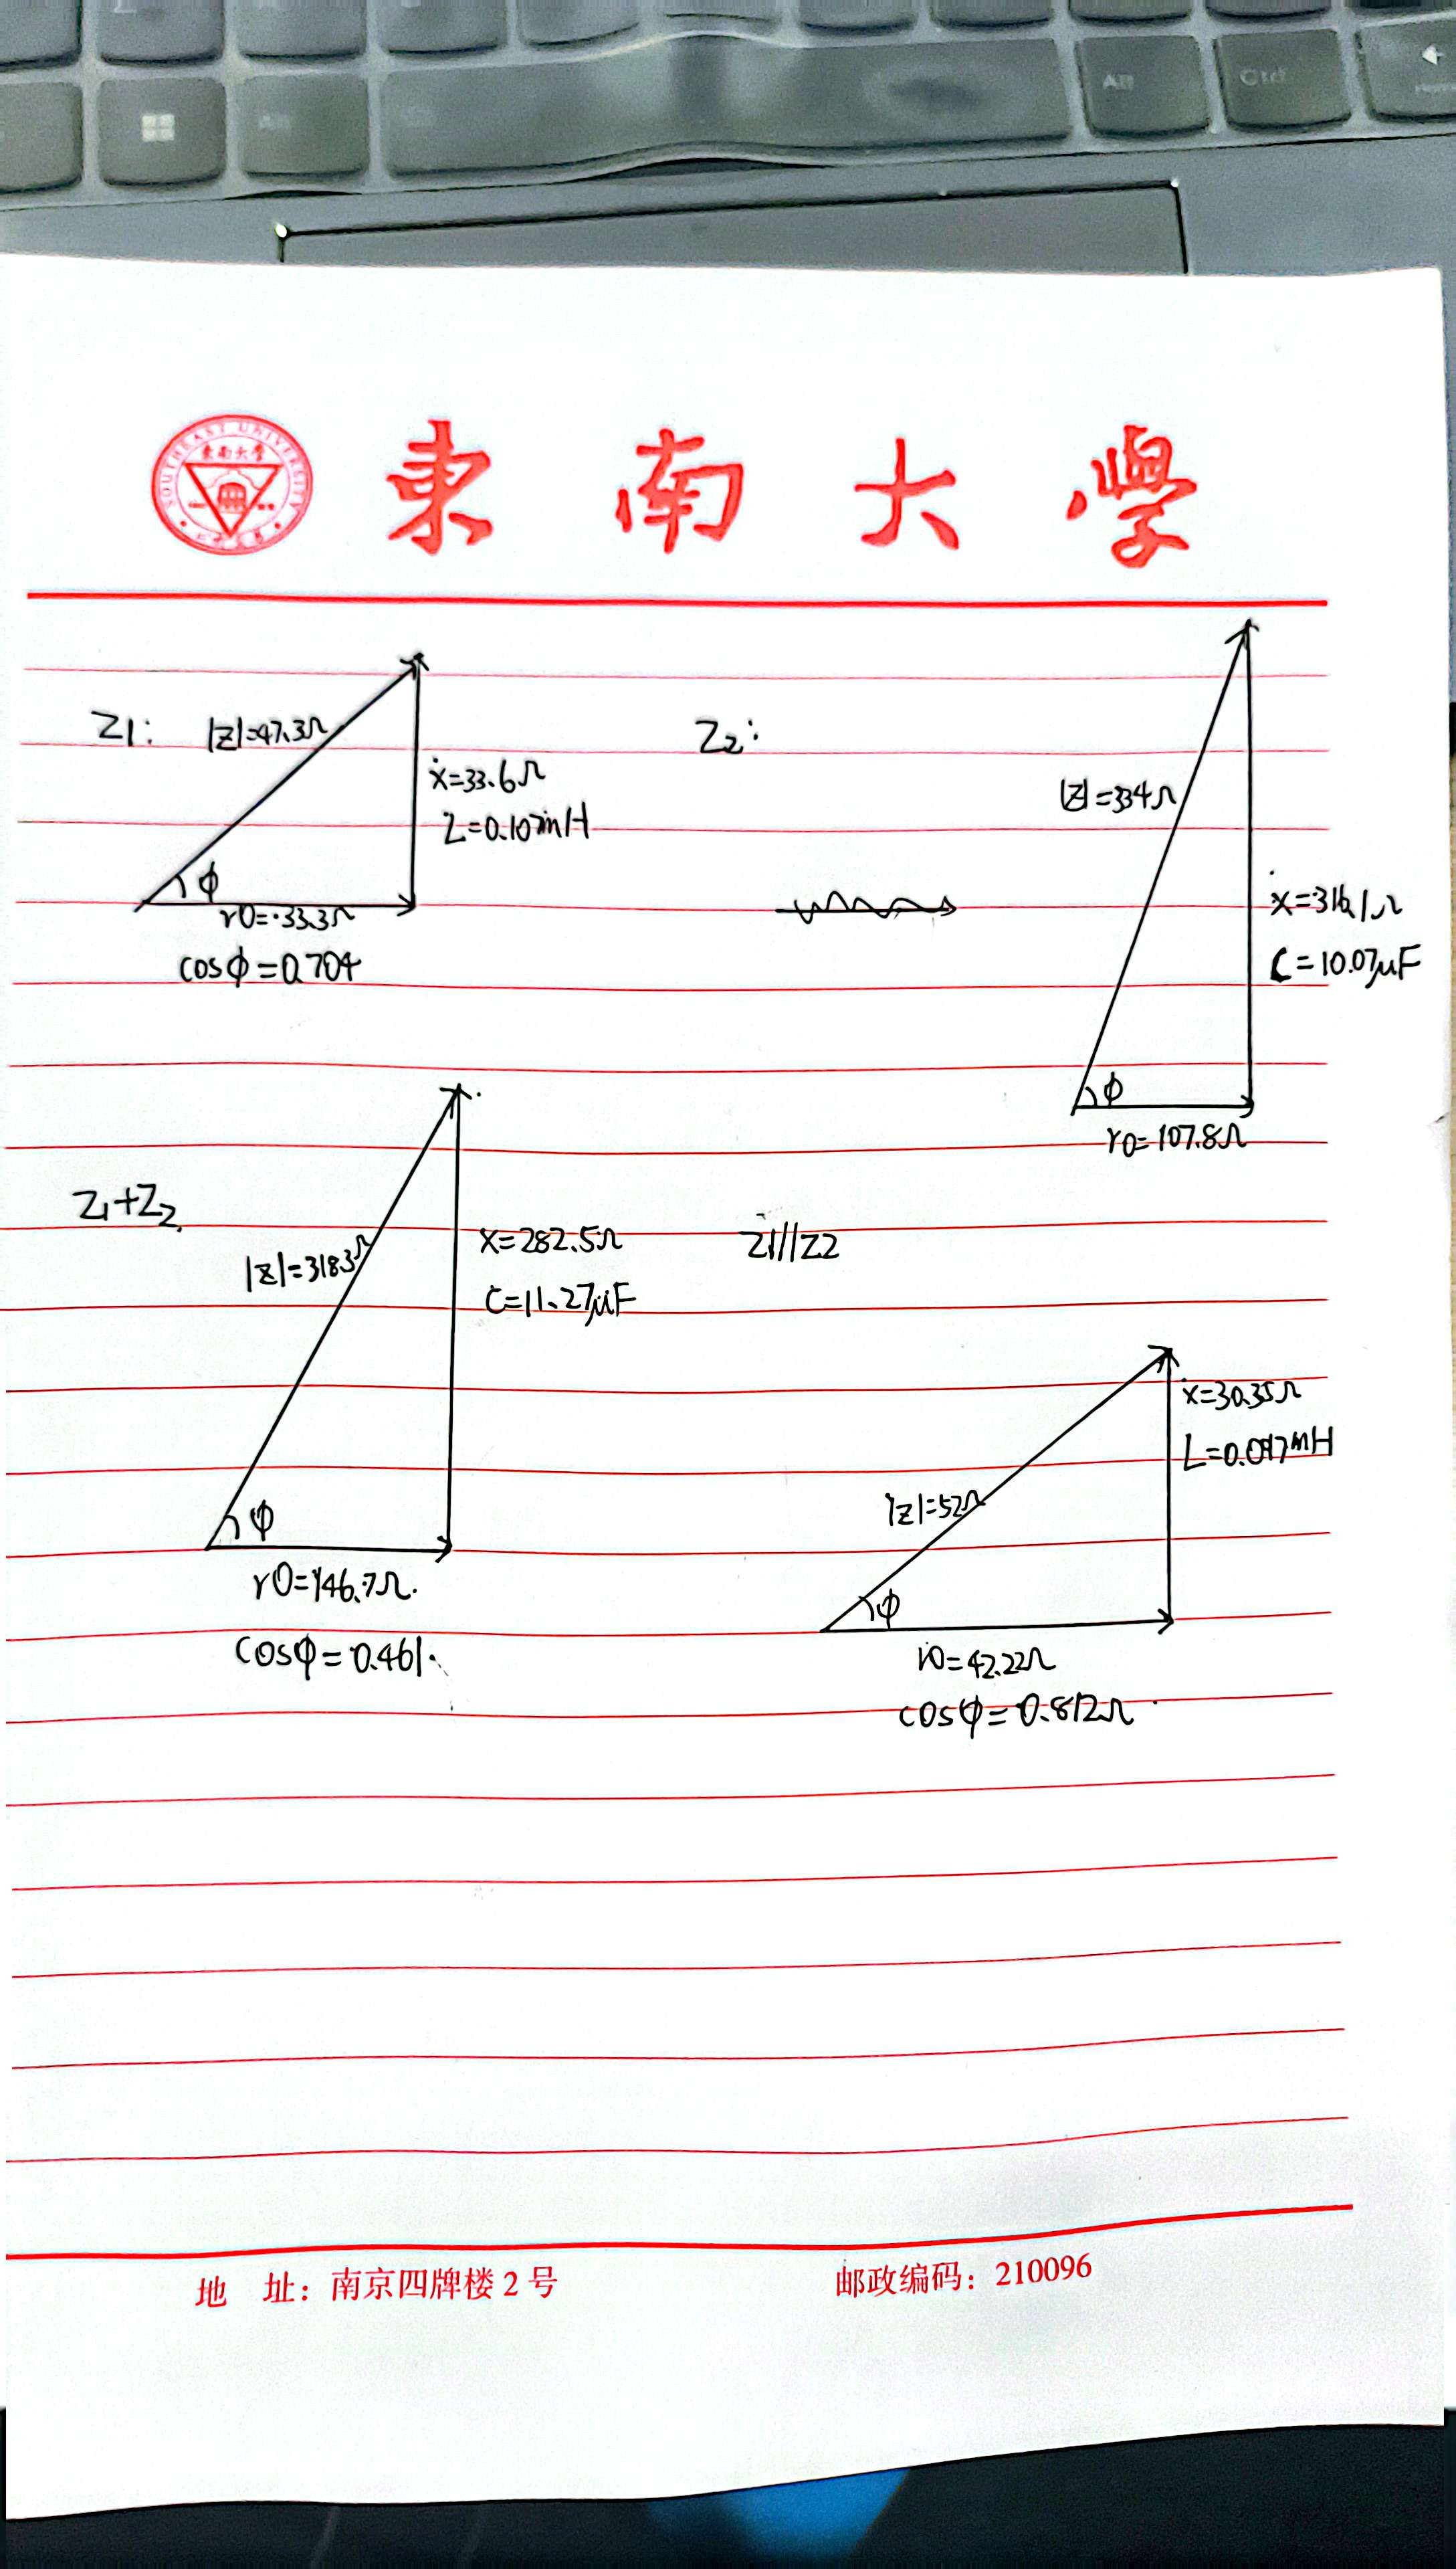 Alt
Ctrl
SOUTHEAST UNIVERSITY
東南大學
東南大學
Z1:
|Z|=47.3Ω
x=33.6Ω
L=0.107mH
φ
r0=33.3Ω
cosφ=0.704
Z2:
|Z|=334Ω
x=316.1Ω
C=10.07μF
φ
r0=107.8Ω
Z1+Z2
|Z|=318.3Ω
x=282.5Ω
C=11.27μF
φ
r0=146.7Ω.
cosφ=0.461.
Z1//Z2
x=30.35Ω
L=0.097mH
|Z|=52Ω
φ
r0=42.22Ω
cosφ=0.812Ω
地 址：南京四牌楼2号
邮政编码：210096